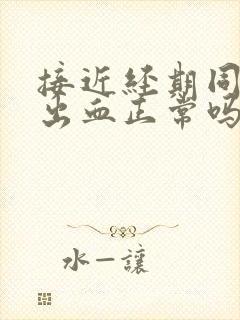 接近经期同
出血正常吗
水一讓